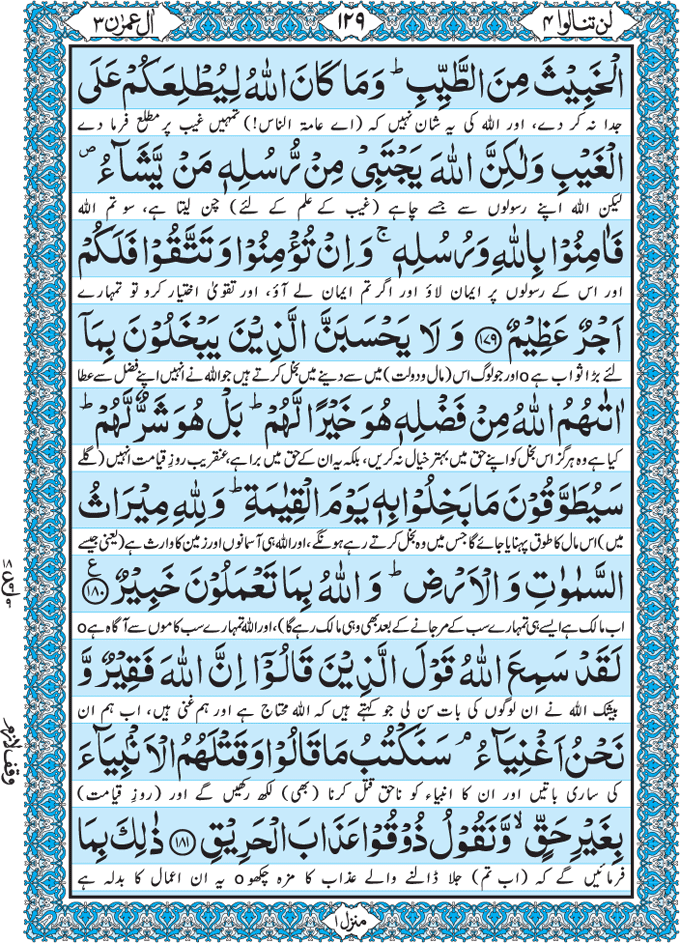 اٰل عمرٰن ۳
۱۲۹
لن تنالوا ۴
الْخَبِیْثَ مِنَ الطَّیِّبِ ؕ وَمَا كَانَ اللّٰهُ لِیُطْلِعَكُمْ عَلَی
جدا نہ کر دے، اور اللہ کی یہ شان نہیں کہ (اے عامۃ الناس!) تمہیں غیب پر مطلع فرما دے
الْغَیْبِ وَلٰكِنَّ اللّٰهَ یَجْتَبِیْ مِنْ رُّسُلِهٖ مَنْ یَّشَآءُ ۪
لیکن اللہ اپنے رسولوں سے جسے چاہے (غیب کے علم کے لئے) چن لیتا ہے، سو تم اللہ
فَاٰمِنُوْا بِاللّٰهِ وَرُسُلِهٖ ۚ وَاِنْ تُؤْمِنُوْا وَتَتَّقُوْا فَلَكُمْ
اور اس کے رسولوں پر ایمان لاؤ اور اگر تم ایمان لے آؤ، اور تقویٰ اختیار کرو تو تمہارے
اَجْرٌ عَظِیْمٌ ﴿۱۷۹﴾ وَ لَا یَحْسَبَنَّ الَّذِیْنَ یَبْخَلُوْنَ بِمَاۤ
لئے بڑا ثواب ہے o اور جو لوگ اس (مال و دولت) میں سے دینے میں بخل کرتے ہیں جو اللہ نے انہیں اپنے فضل سے عطا
اٰتٰىهُمُ اللّٰهُ مِنْ فَضْلِهٖ هُوَ خَیْرًا لَّهُمْ ؕ بَلْ هُوَ شَرٌّ لَّهُمْ ؕ
کیا ہے وہ ہرگز اس بخل کو اپنے حق میں بہتر خیال نہ کریں، بلکہ یہ ان کے حق میں برا ہے، عنقریب روزِ قیامت انہیں (گلے
سَیُطَوَّقُوْنَ مَا بَخِلُوْا بِهٖ یَوْمَ الْقِیٰمَةِ ؕ وَلِلّٰهِ مِیْرَاثُ
میں) اس مال کا طوق پہنایا جائے گا جس میں وہ بخل کرتے رہے ہونگے، اور اللہ ہی آسمانوں اور زمین کا وارث ہے (یعنی جیسے
السَّمٰوٰتِ وَ الْاَرْضِ ؕ وَ اللّٰهُ بِمَا تَعْمَلُوْنَ خَبِیْرٌ ﴿۱۸۰﴾ ع
اب مالک ہے ایسے ہی تمہارے سب کے مر جانے کے بعد بھی وہی مالک رہے گا)، اور اللہ تمہارے سب کاموں سے آگاہ ہے o
لَقَدْ سَمِعَ اللّٰهُ قَوْلَ الَّذِیْنَ قَالُوْۤا اِنَّ اللّٰهَ فَقِیْرٌ وَّ
بیشک اللہ نے ان لوگوں کی بات سن لی جو کہتے ہیں کہ اللہ محتاج ہے اور ہم غنی ہیں، اب ہم ان
نَحْنُ اَغْنِیَآءُ ۘ سَنَكْتُبُ مَا قَالُوْا وَقَتْلَهُمُ الْاَنْۢبِیَآءَ
کی ساری باتیں اور ان کا انبیاء کو ناحق قتل کرنا (بھی) لکھ رکھیں گے اور (روزِ قیامت)
وقف لازم
بِغَیْرِ حَقٍّ ۙ وَّنَقُوْلُ ذُوْقُوْا عَذَابَ الْحَرِیْقِ ﴿۱۸۱﴾ ذٰلِكَ بِمَا
فرمائیں گے کہ (اب تم) جلا ڈالنے والے عذاب کا مزہ چکھو o یہ ان اعمال کا بدلہ ہے
منزل ۱